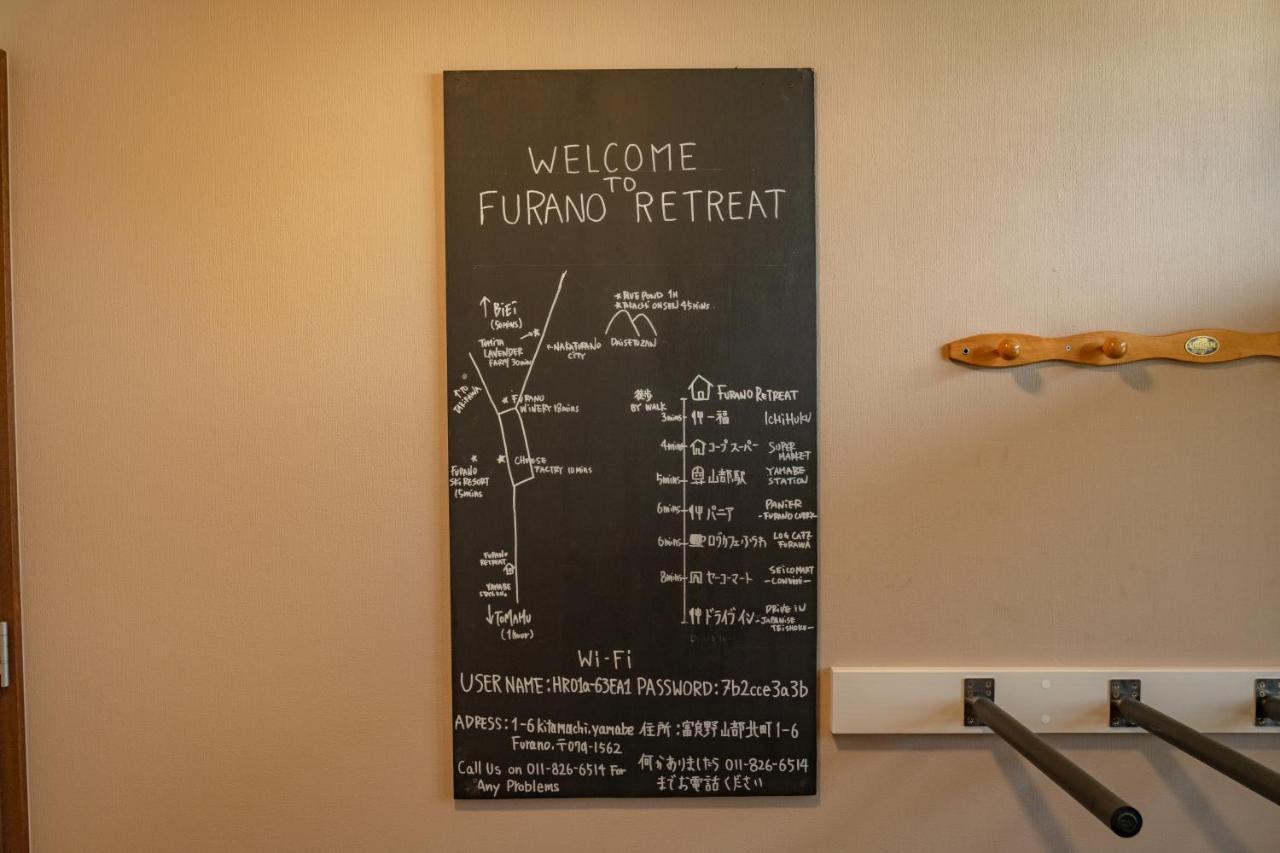 WELCOME
TO
FURANO RETREAT
↑ BiEi
(50mins)
TOMITA
LAVENDER
FARM 30mins
←NAKAFURANO
CITY
★BLUE POND 1H
★TOKACHI ONSEN 45mins
DAISETUZAN
↑TO
★FURANO
WINERY 18mins
CHEESE
FACTRY 10mins
FURANO
SKI RESORT
15mins
FURANO
RETREAT
YAMABE
STATION
↓TOMAMU
(1hour)
徒歩
BY WALK
FURANO RETREAT
3mins 一福 ICHIFUKU
4mins コープスーパー SUPER
MARKET
5mins 山部駅 YAMABE
STATION
6mins パニア PANiER
-FURANO CURRY-
6mins ログカフェふうわ LOG CAFE
FUUWA
8mins セーコーマート SEiCOMART
-CONViNi-
ドライブイン DRiVE iN
-JAPANISE
TEiSHOKU-
Wi-Fi
USER NAME:HR01a-63EA1 PASSWORD:7b2cce3a3b
ADRESS:1-6 kitamachi.yamabe 住所:富良野山部北町1-6
Furano.〒079-1562
Call Us on 011-826-6514 For
Any Problems
何かありましたら 011-826-6514
までお電話ください